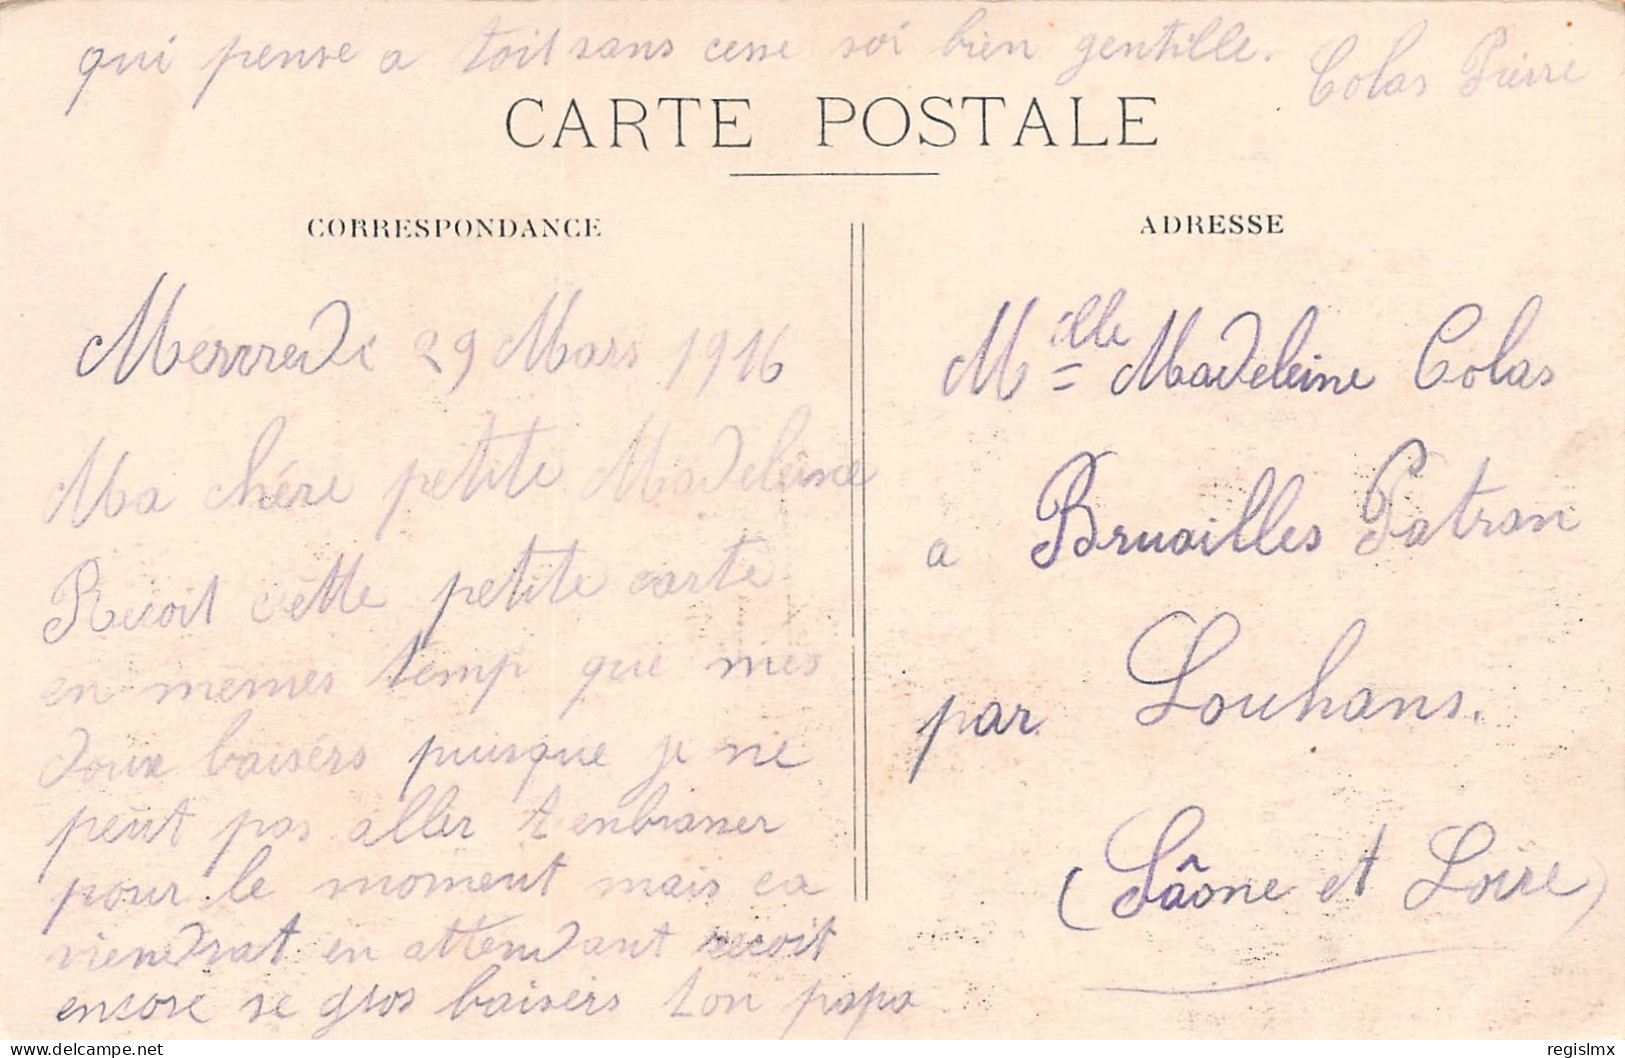 qui pense a toit sans cesse soi bien gentille.
Colas Pierre
CARTE POSTALE
CORRESPONDANCE
Mercredi 29 Mars 1916
Ma chére petite Madeleine
Recoit cette petite carte
en mêmes temp que mes
doux baisérs puisque je ne
peût pas aller t enbrasser
pour le moment mais ca
viendrat en attendant recoit
encore se gros baisérs ton papa
ADRESSE
Mille Madeleine Colas
a Bruailles Patran
par Louhans.
(Sâone et Loire)
regislmx
www.delcampe.net